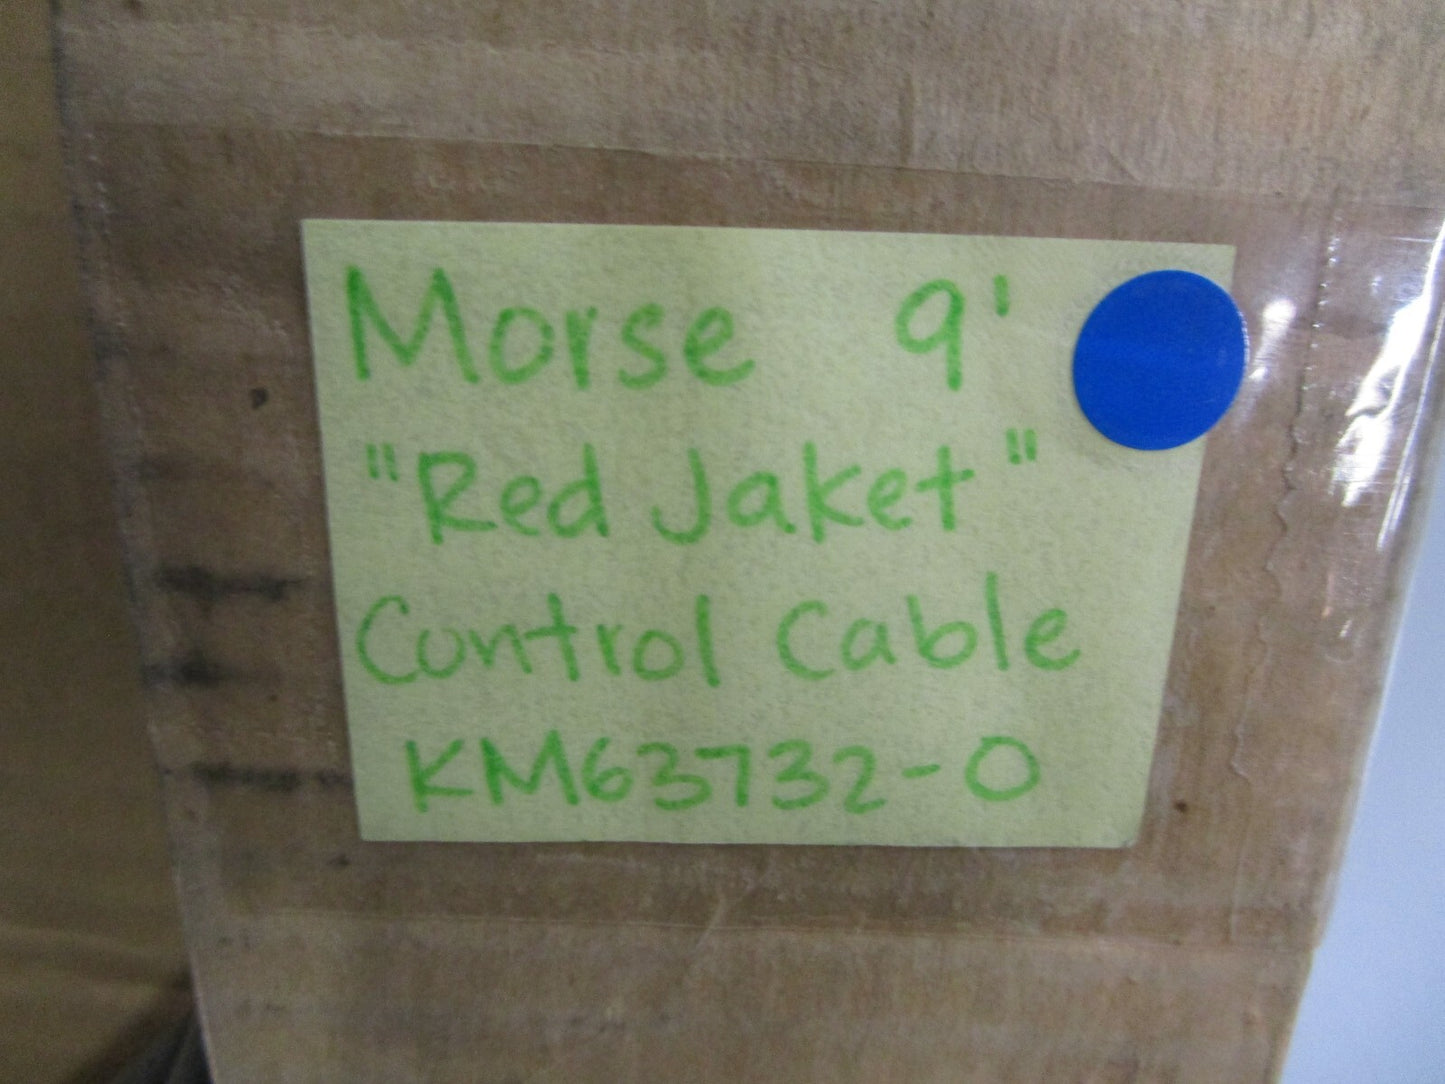 Morse 9'
"Red Jaket"
Control Cable
KM63732-0